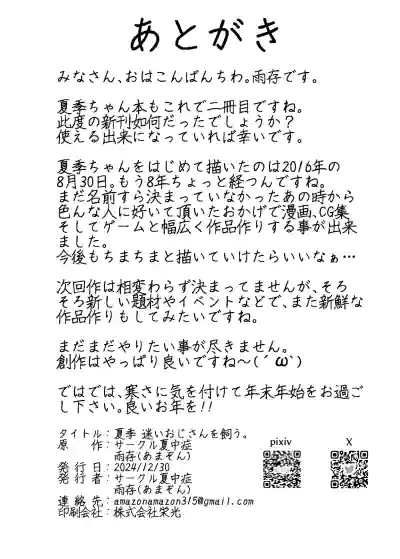 あとがき
みなさん、おはこんばんちわ。雨存です。
夏季ちゃん本もこれで二冊目ですね。
此度の新刊如何だったでしょうか？
使える出来になっていれば幸いです。
夏季ちゃんをはじめて描いたのは2016年の
8月30日。もう8年ちょっと経つんですね。
まだ名前すら決まっていなかったあの時から
色んな人に好いて頂いたおかげで漫画、CG集
そしてゲームと幅広く作品作りする事が出来
ました。
今後もちまちまと描いていけたらいいなぁ…
次回作は相変わらず決まってませんが、そろ
そろ新しい題材やイベントなどで、また新鮮な
作品作りもしてみたいですね。
まだまだやりたい事が尽きません。
創作はやっぱり良いですね～(´ω`)
ではでは、寒さに気を付けて年末年始をお過ご
し下さい。良いお年を!!
タイトル：夏季 迷いおじさんを飼う。
原　　作：サークル夏中症
雨存(あまぞん)
発 行 日：2024/12/30
発 行 者：サークル夏中症
雨存(あまぞん)
連 絡 先：amazonamazon315@gmail.com
印刷会社：株式会社栄光
pixiv
X